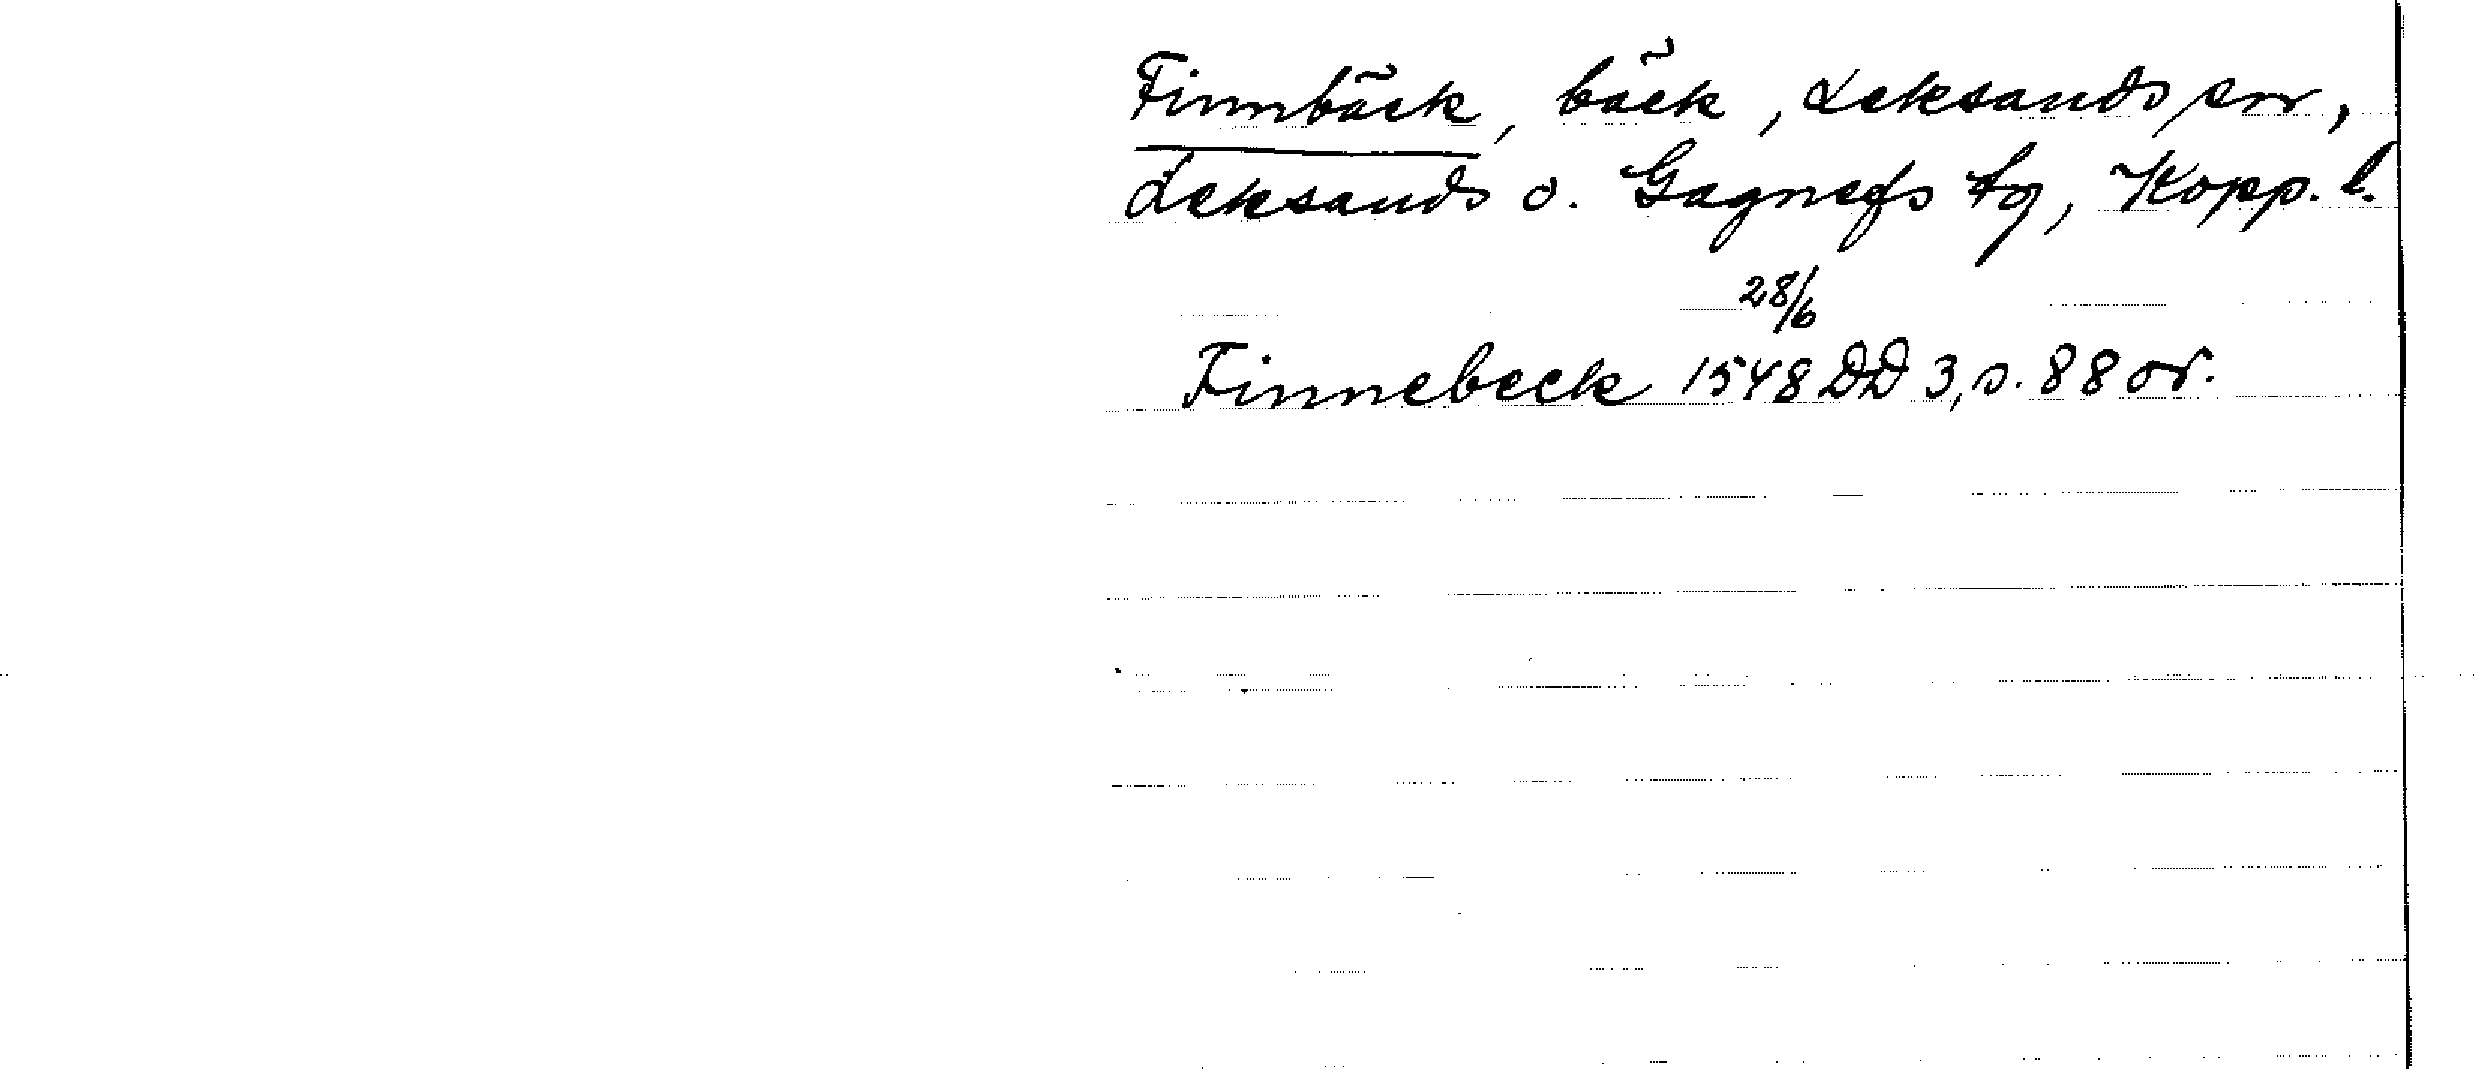 Finnbäck, bäck, Leksands sn,
Leksands o. Gagnefs tg, Kopp. l.
28/6
Finnebeck 1548 DD 3, s. 88 or.